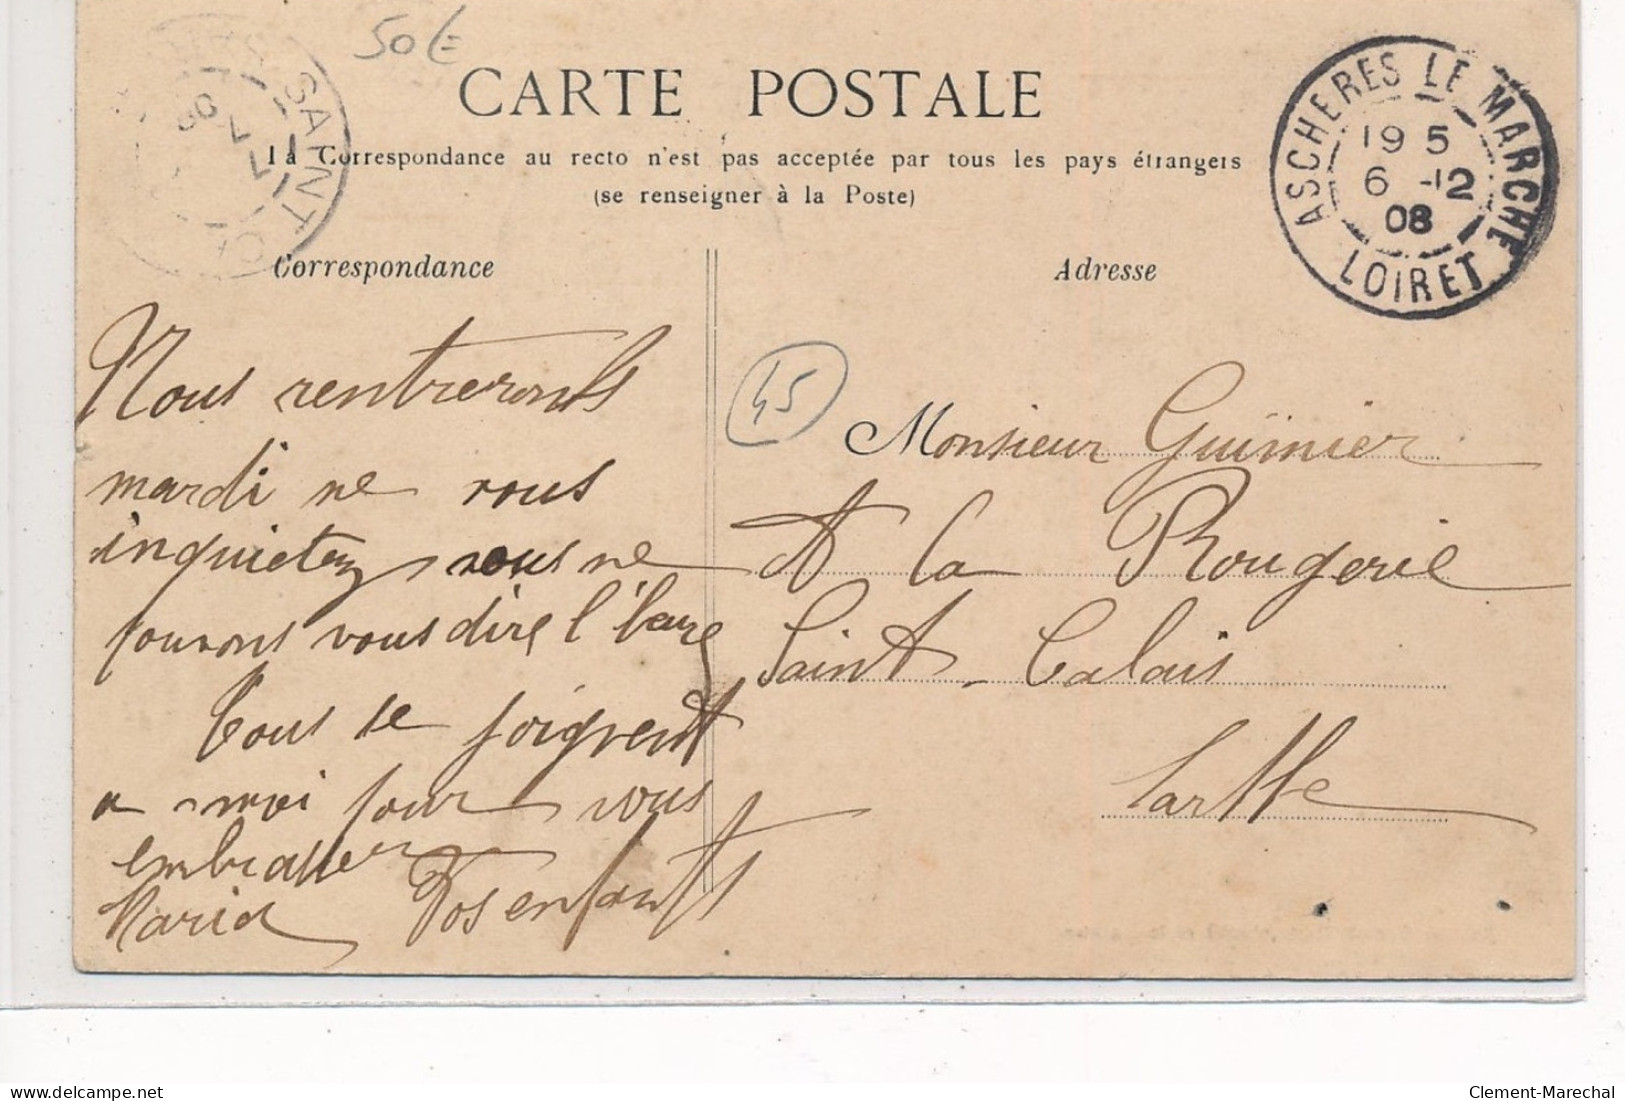 50€
CARTE POSTALE
La Correspondance au recto n'est pas acceptée par tous les pays étrangers
(se renseigner à la Poste)
SAINT
ASCHERES LE MARCHE
19 5
6 -12
08
LOIRET
Correspondance
Adresse
Nous rentrerons
mardi ne vous
inquietez vous ne
pouvons vous dire l'heure
Tous se joignent
a moi pour vous
embrasser
Maria Vos enfants
45
Monsieur Guimier
A la Rougerie
Saint-Calais
Sarthe
Clement-Marechal